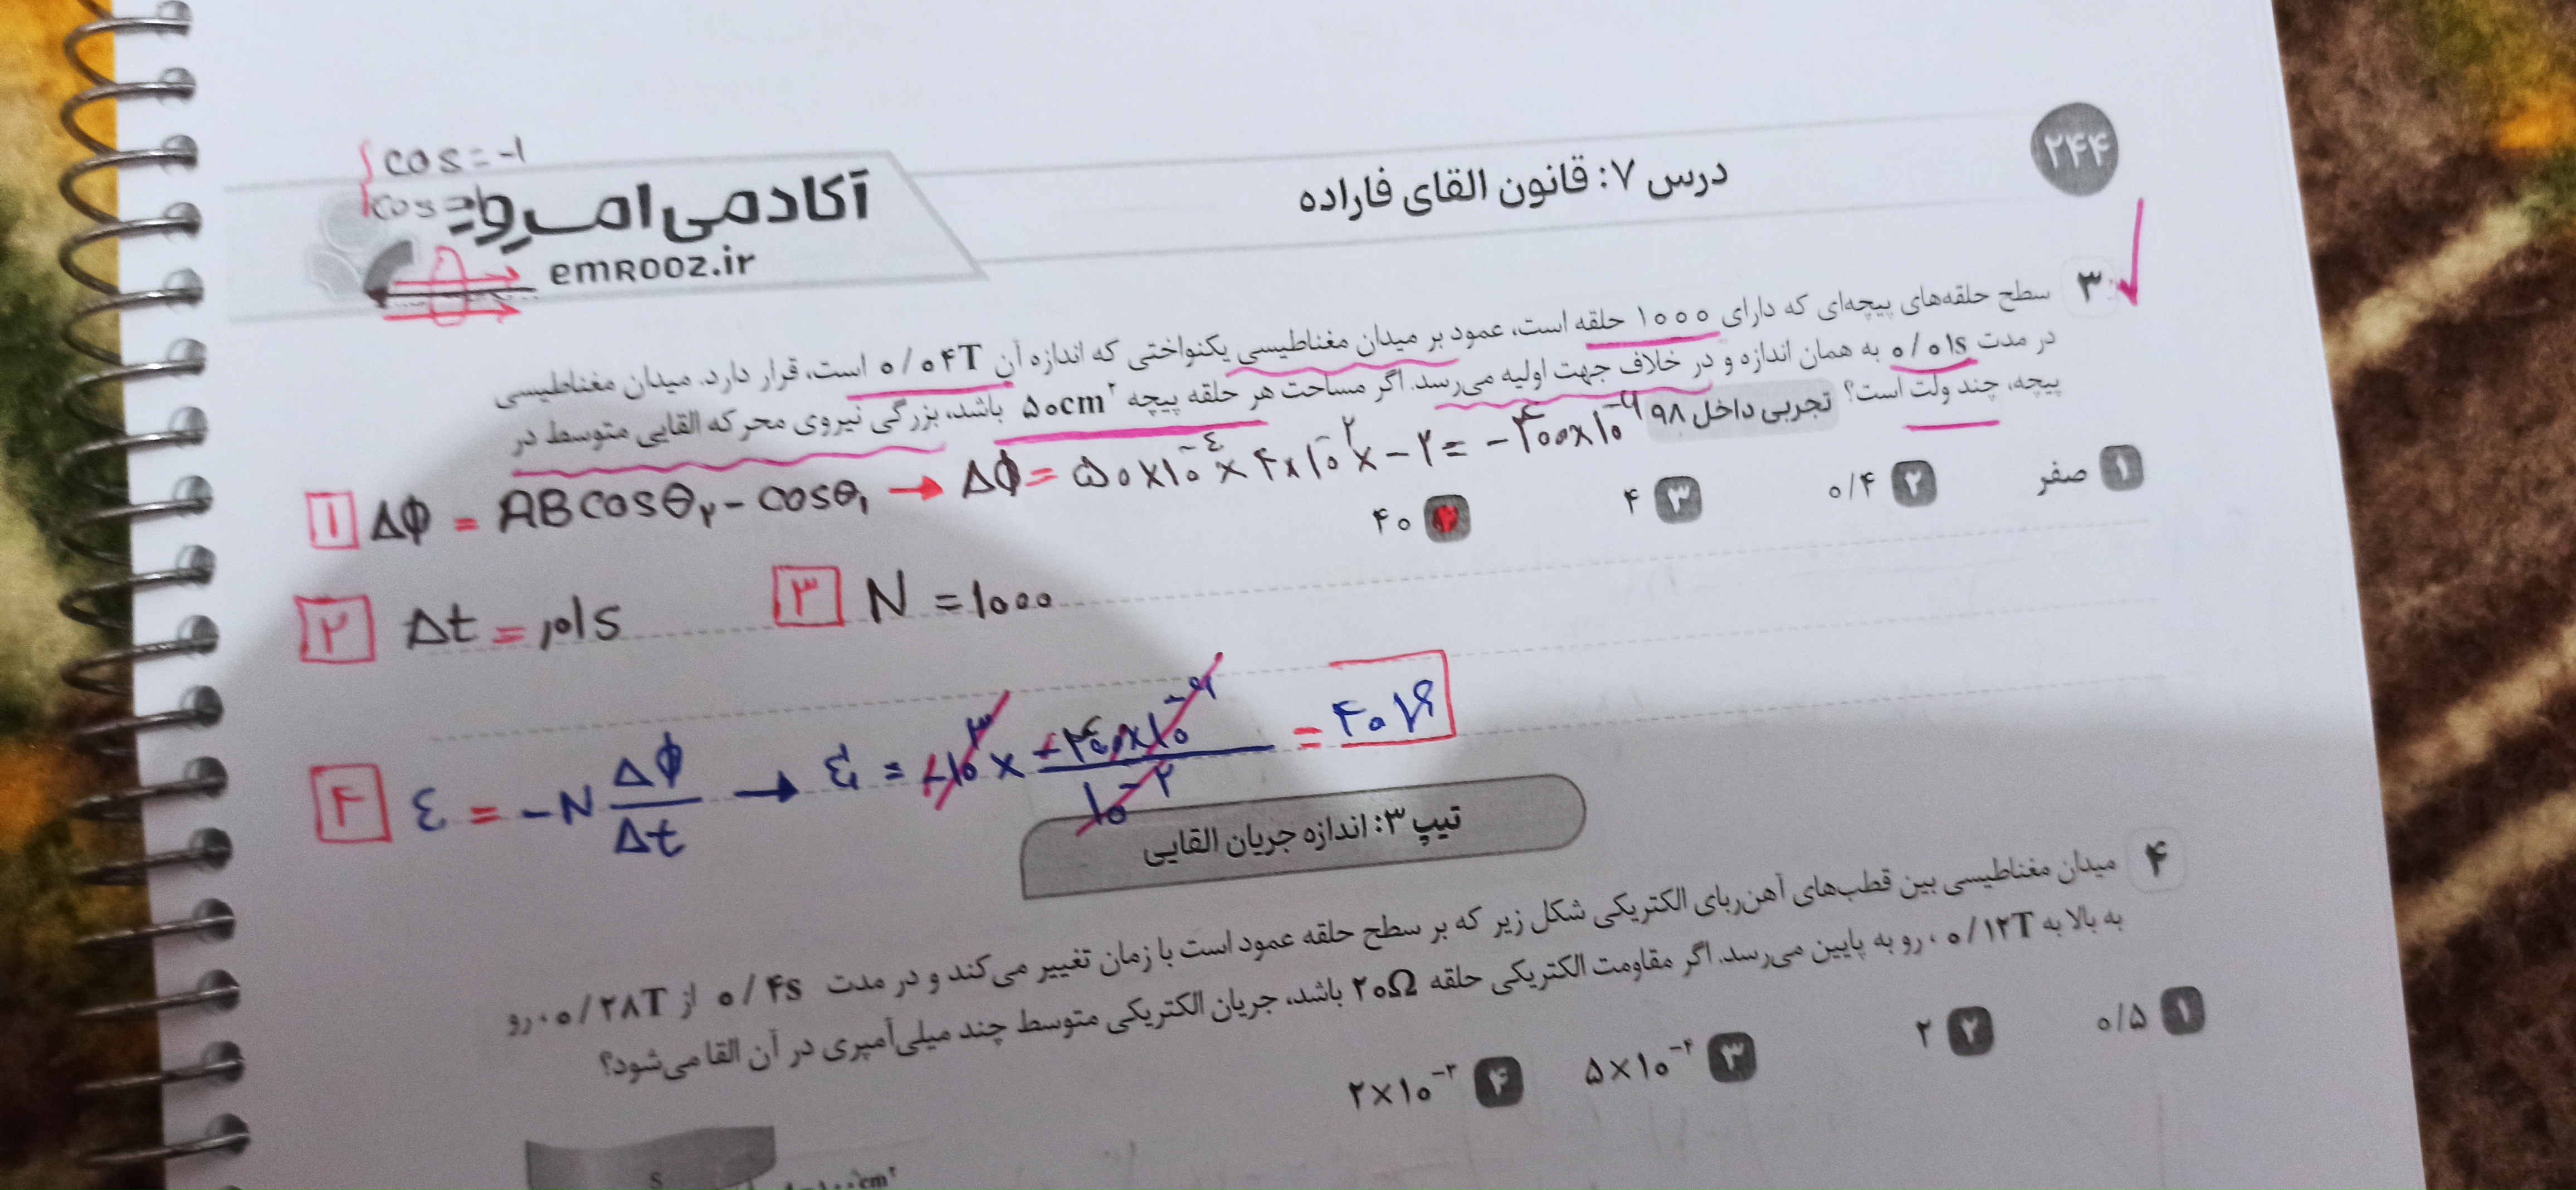 ۲۴۴
درس ۷: قانون القای فاراده
cos = -۱
cos = ۱
آکادمی امروز
emrooz.ir
۳ سطح حلقه‌های پیچه‌ای که دارای ۱۰۰۰ حلقه است، عمود بر میدان مغناطیسی یکنواختی که اندازه آن ۰/۰۴T است، قرار دارد. میدان مغناطیسی
در مدت ۰/۰۱s به همان اندازه و در خلاف جهت اولیه می‌رسد. اگر مساحت هر حلقه پیچه ۵۰cm² باشد، بزرگی نیروی محرکه القایی متوسط در
پیچه، چند ولت است؟ تجربی داخل ۹۸
۱ صفر ۲ ۰/۴ ۳ ۴ ۴ ۴۰
۱ ΔΦ = ABcosθ₂ - cosθ₁ → ΔΦ = ۵۰×۱۰⁻⁴ × ۴×۱۰⁻² × -۲ = -۴۰۰×۱۰⁻⁶
۲ Δt = ,۰۱s ۳ N = ۱۰۰۰
۴ ε = -N ΔΦ/Δt → ε = -۱۰³ × -۴۰۰×۱۰⁻⁶/۱۰⁻² = ۴۰V
تیپ ۳: اندازه جریان القایی
۴ میدان مغناطیسی بین قطب‌های آهن‌ربای الکتریکی شکل زیر که بر سطح حلقه عمود است با زمان تغییر می‌کند و در مدت ۰/۴s از ۰/۲۸T، رو
به بالا به ۰/۱۲T، رو به پایین می‌رسد. اگر مقاومت الکتریکی حلقه ۲۰Ω باشد، جریان الکتریکی متوسط چند میلی‌آمپری در آن القا می‌شود؟
۱ ۰/۵ ۲ ۲ ۳ ۵×۱۰⁻⁴ ۴ ۲×۱۰⁻³
S